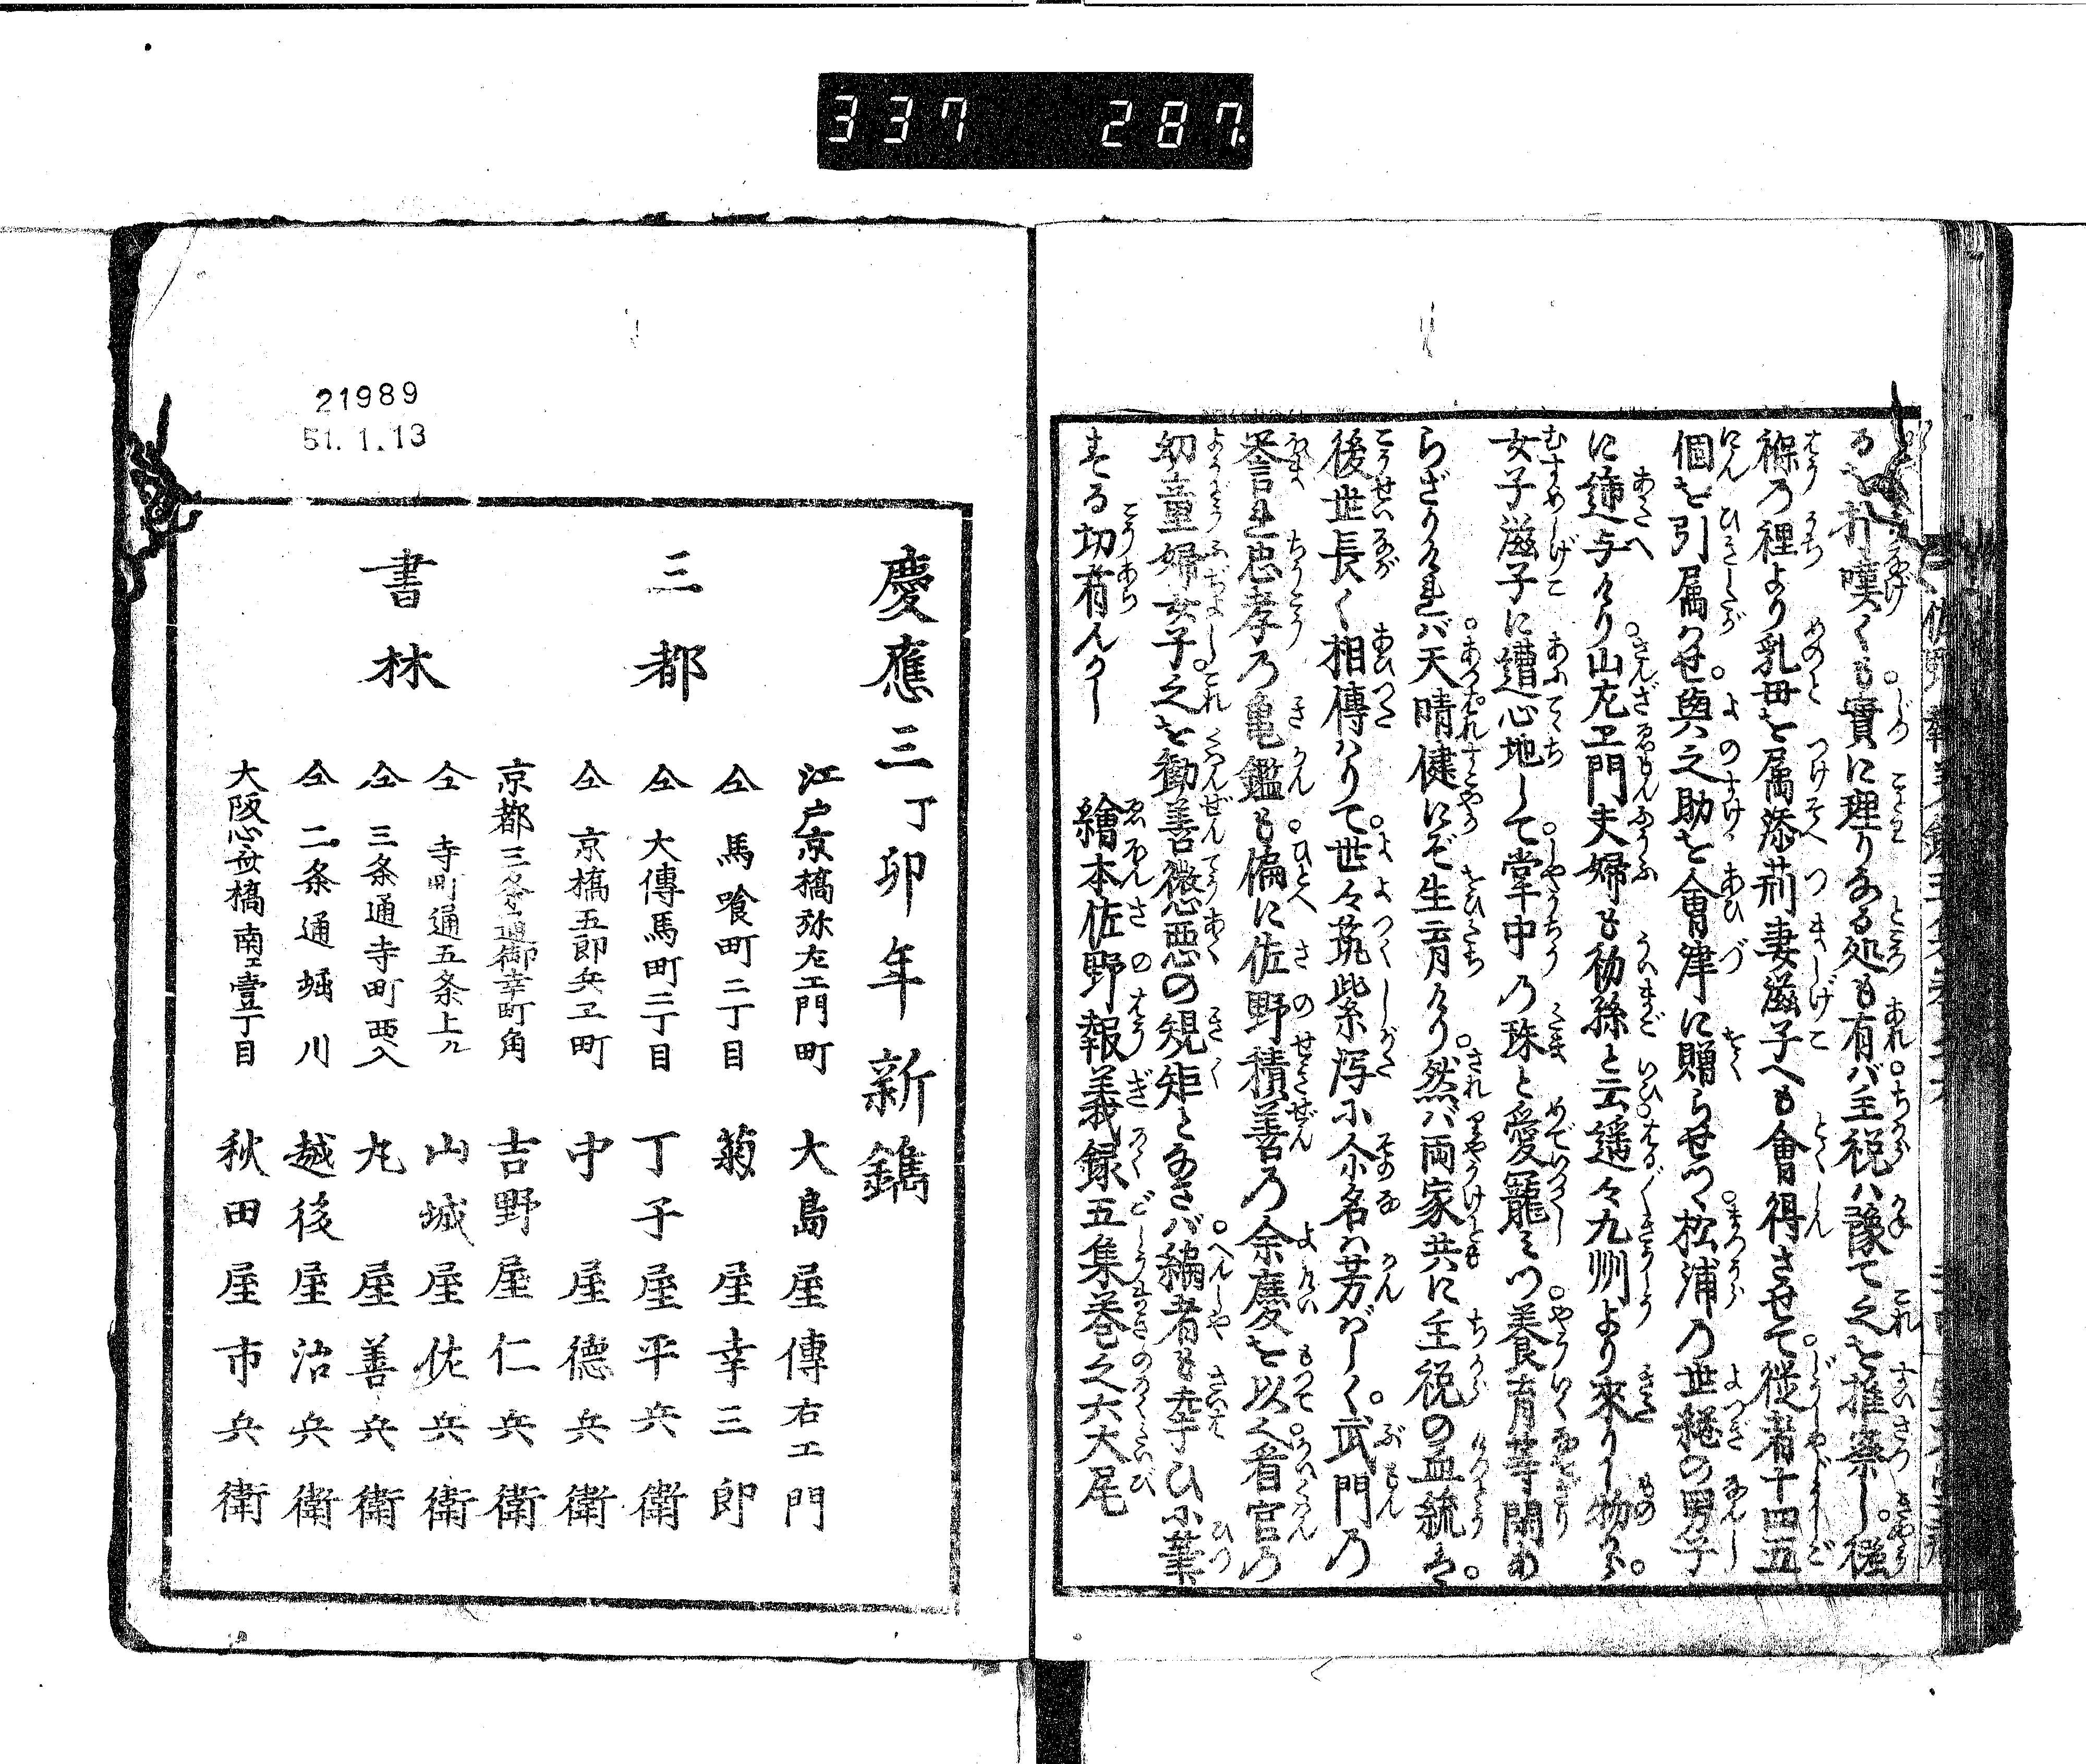 337 287
るを打嘆くも實に理りなる処も有バ主税ハ豫て之を推察し。襁
褓の裡より乳母を属添荊妻滋子へも會得させて。従者十四五
個を引属させ。與之助を會津に贈らせつ。松浦の世継の男子
に遞与けり。山左ヱ門夫婦も初孫と云。遥々九州より來りし物から。
女子滋子に遭心地して。掌中の珠と愛寵みつ。養育等閑な
らざりけれバ。天晴健にぞ生育けり。然バ両家共に主税の血統を。
後世長く相傳はりて。世々筑紫潟に其名ハ芳ばしく。武門の
誉れ忠孝の亀鑑も。偏に佐野積善の余慶を以て。看官の
幼童婦女子。之を勸善懲悪の規矩となさバ。編者も幸ひに筆
せる功有んかし
繪本佐野報義録五集巻之六大尾
21989
51.1.13
慶應三丁卯年新鐫
三都
書林
江戸京橋弥左エ門町 大島屋傳右エ門
仝 馬喰町二丁目 菊屋幸三郎
仝 大傳馬町二丁目 丁子屋平兵衛
仝 京橋五郎兵ヱ町 中屋德兵衛
京都三条通御幸町角 吉野屋仁兵衛
仝 寺町通五条上ル 山城屋佐兵衛
仝 三条通寺町西入 丸屋善兵衛
仝 二条通堀川 越後屋治兵衛
大阪心斎橋南エ壹丁目 秋田屋市兵衛